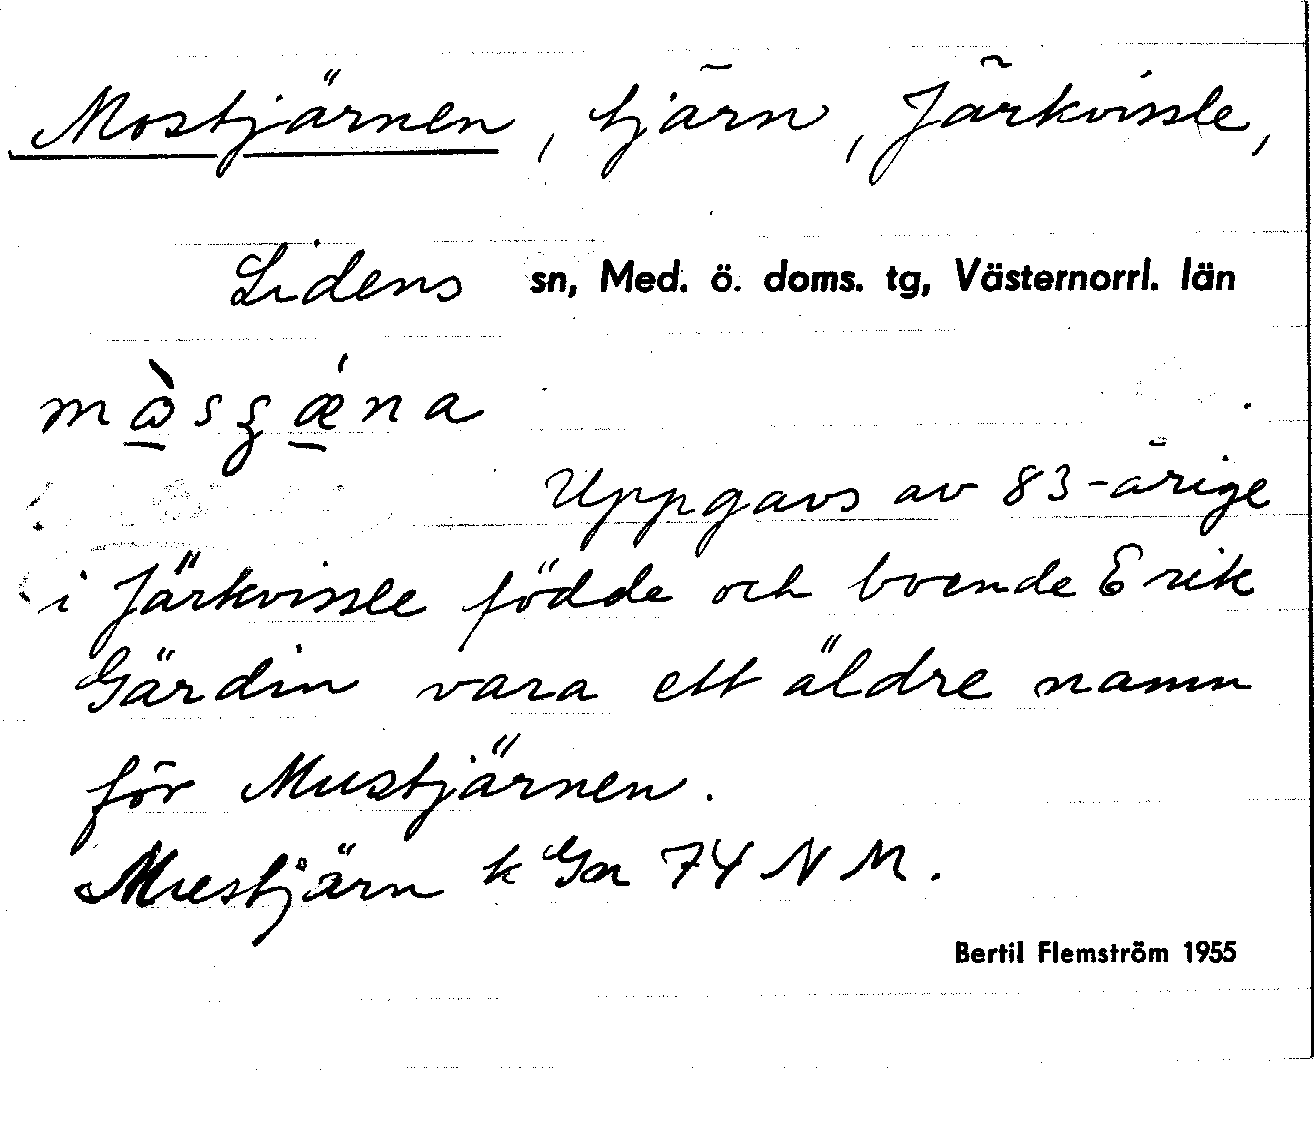 Mostjärnen, tjärn, Järkvissle,
Lidens sn, Med. ö. doms. tg, Västernorrl. län
Uppgavs av 83-årige
i Järkvissle födde och boende Erik
Gärdin vara ett äldre namn
för Mustjärnen.
Mustjärn k Gn 74 NM.
Bertil Flemström 1955